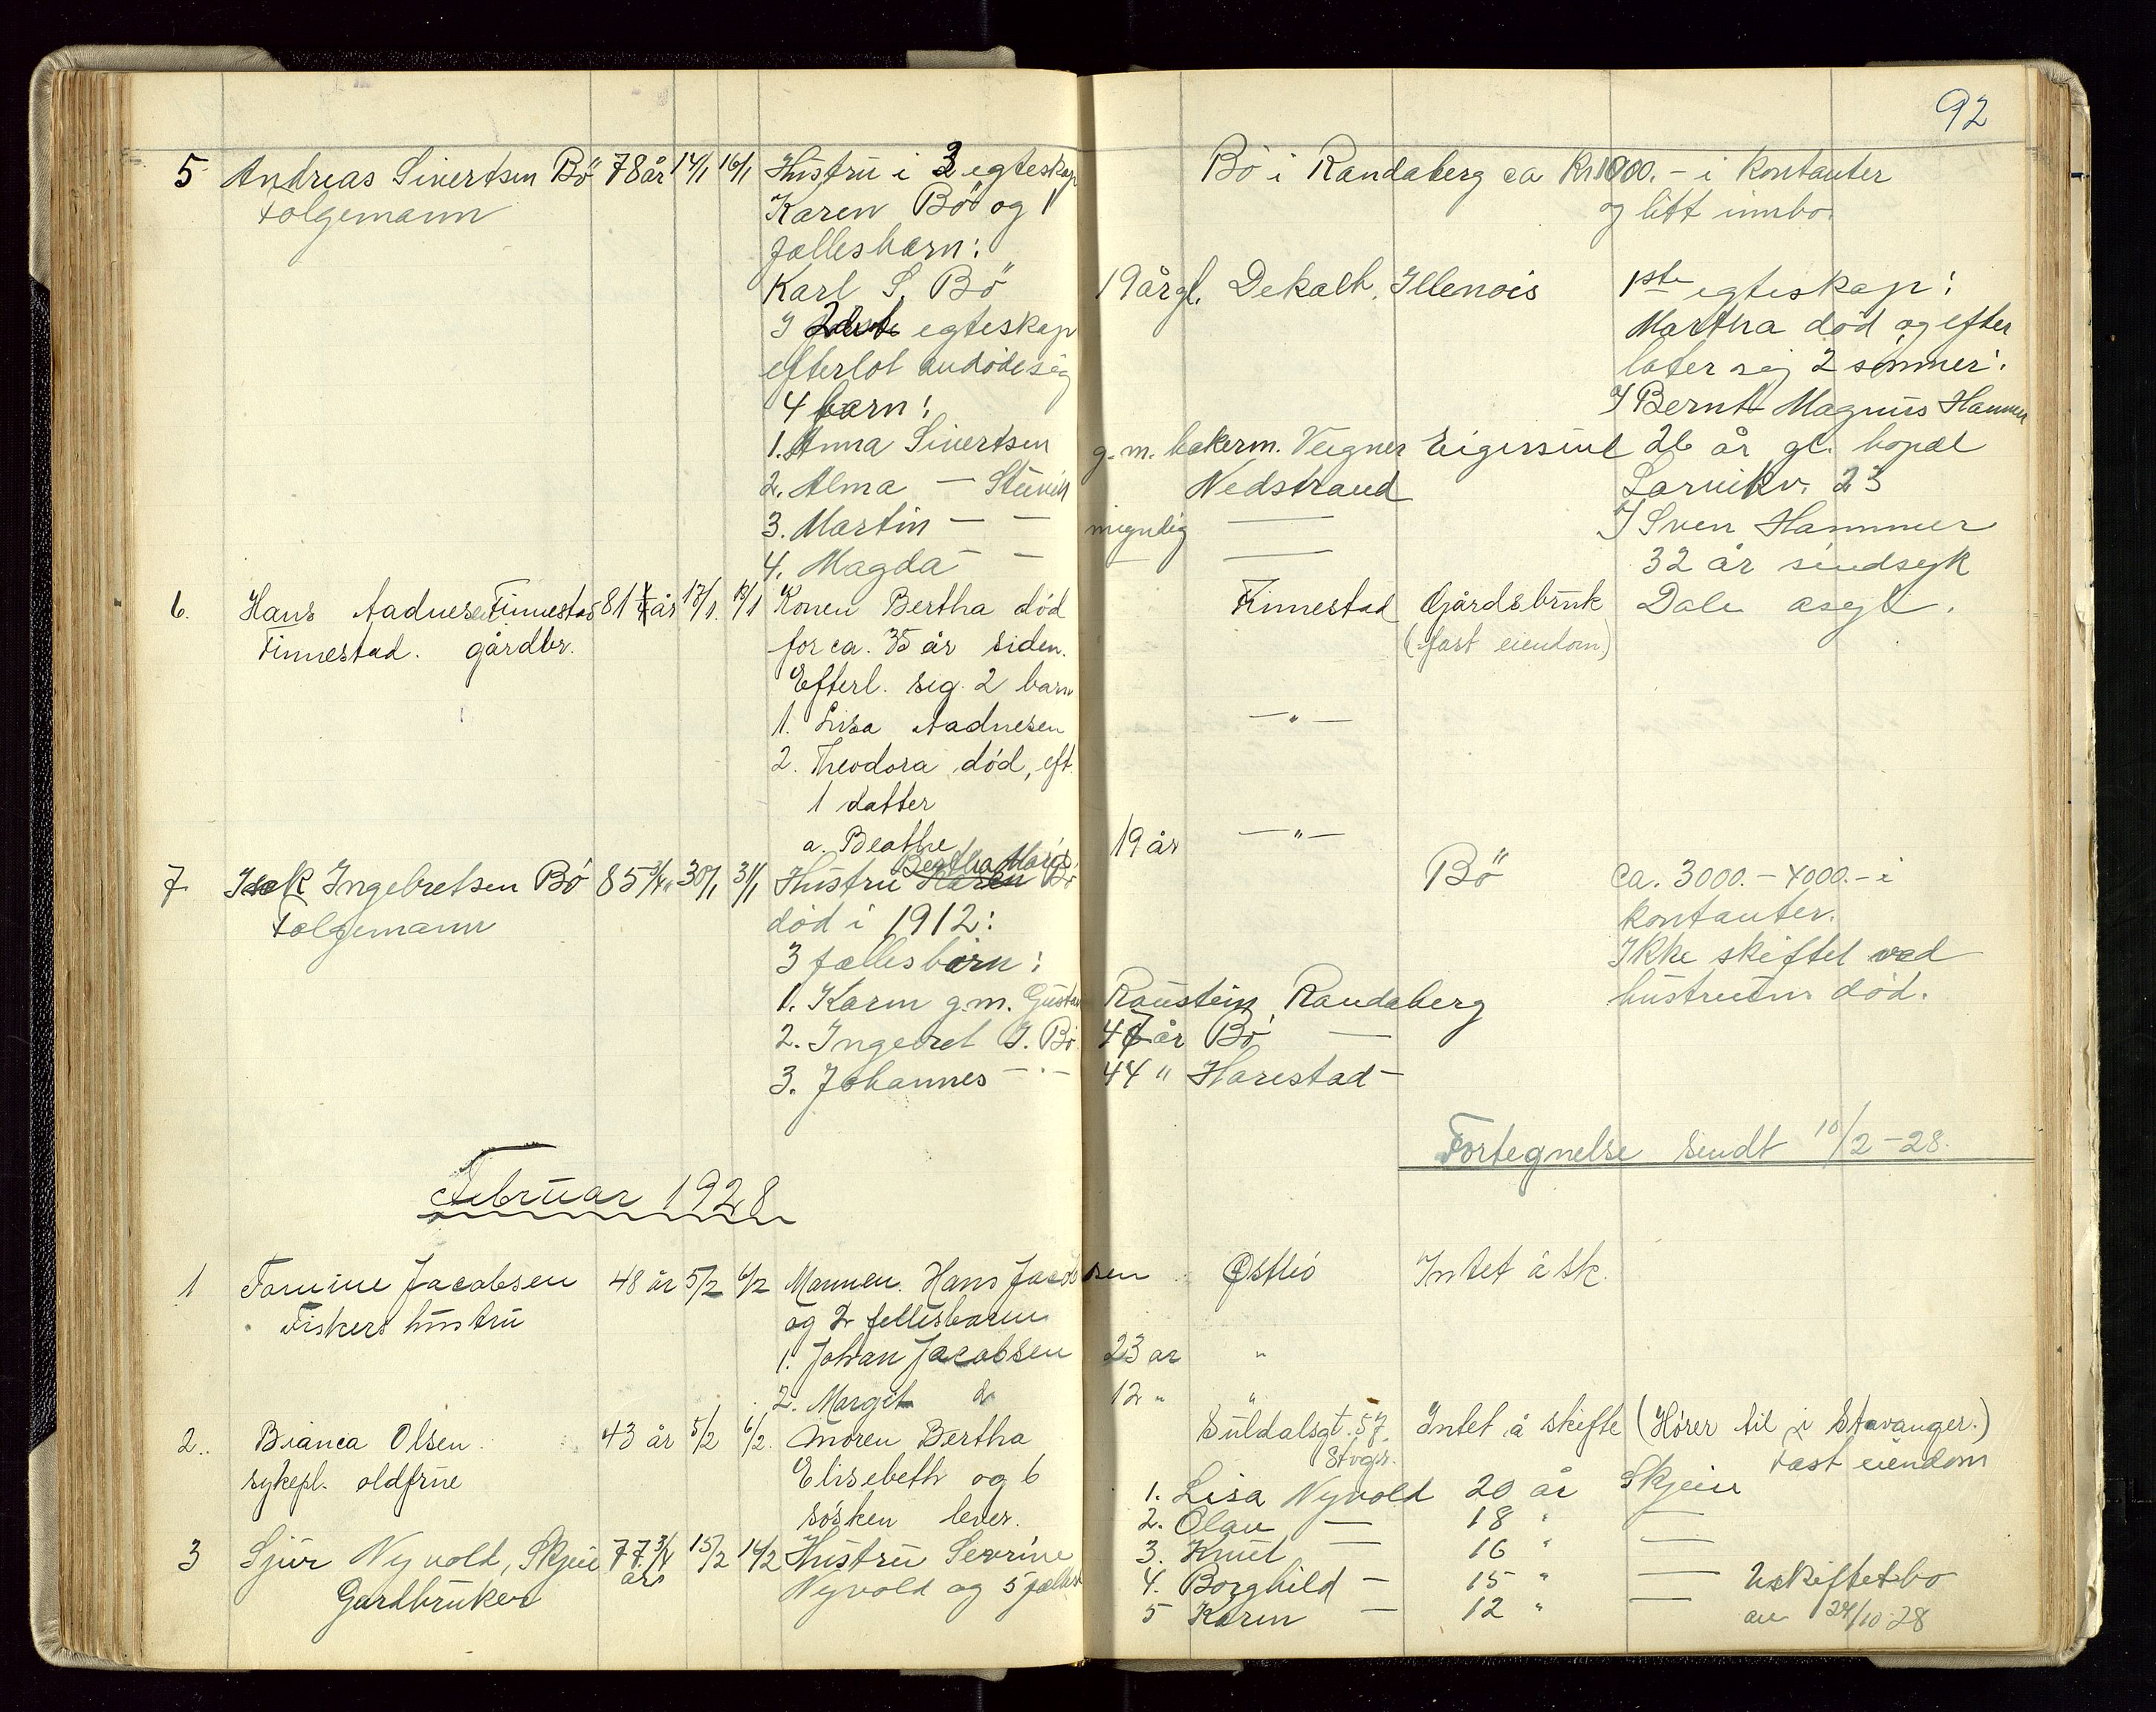 92
5 Andreas Sivertsen Bö 78 år 14/1 16/1 Hustru i 3 egteskap Bö i Randaberg ca Kr 1000.- i kontanter
Folgemann Karen Bö og 1 og litt innbo.
fællesbarn:
Karl S. Bö 19 år gl. Dekalb, Illenois 1ste egteskap:
I 2det egteskap Martha död og efter
efterlot avdöde sig later sig 2 sönner:
4 barn: Bernt Magnus Hammer
1. Anna Sivertsen g.m. bakerm. Veigner Eigersund 26 år gl. bopæl
2. Alma — Nedstrand Larvikv. 23
3. Martin — — myndig — Sven Hammer
4. Magda — — — 32 år sindsyk
6. Hans Aadnesen Finnestad 81 år 17/1 19/1 Konen Bertha död Finnestad Gårdsbruk Dale asyl.
Finnestad. gårdbr. for ca. 35 år siden. (fast eiendom)
Efterl. sig 2 barn
1. Lisa Aadnesen —"—
2. Theodora död, eft.
1 datter
a. Beathe 19 år —"—
Bertha Marie
7 Isak Ingebretsen Bö 85 3/4 " 30/1 31/1 Hustru Karen Bö Bö ca. 3000.- 4000.- i
Folgemann död i 1912: kontanter.
3 fællesbarn: Ikke skiftet ved
1. Karen g.m. Gustav Raustein, Randaberg hustruens död.
2. Ingebret I. Bö 47 år Bö —
3. Johannes —"— 44 " Harestad —
Fortegnelse sendt 10/2-28.
Februar 1928
1 Tomine Jacobsen 48 år 5/2 6/2 Mannen. Hans Jacobsen Östbö Intet å sk.
Fiskers hustru og 2 fellesbarn
1. Johan Jacobsen 23 år "
2. Margit do 12 " "
2. Bianca Olsen 43 år 5/2 6/2. Moren Bertha Suldalsgt. 57, Intet å skifte (Hörer til i Stavanger.)
sykepl. oldfrue Elisebeth og 6 Stvgr. Fast eiendom
sösken lever. 1. Lisa Nyvold 20 år Skjeie
2. Olav — 18 " —
3 Sjur Nyvold, Skjeie 77 3/4 15/2 16/2 Hustru Severine 3. Knut — 16 " —
Gardbruker års Nyvold og 5 fælles 4. Borghild — 15 " — Uskiftet bo
5 Karen — 12 " — av 24/10 28